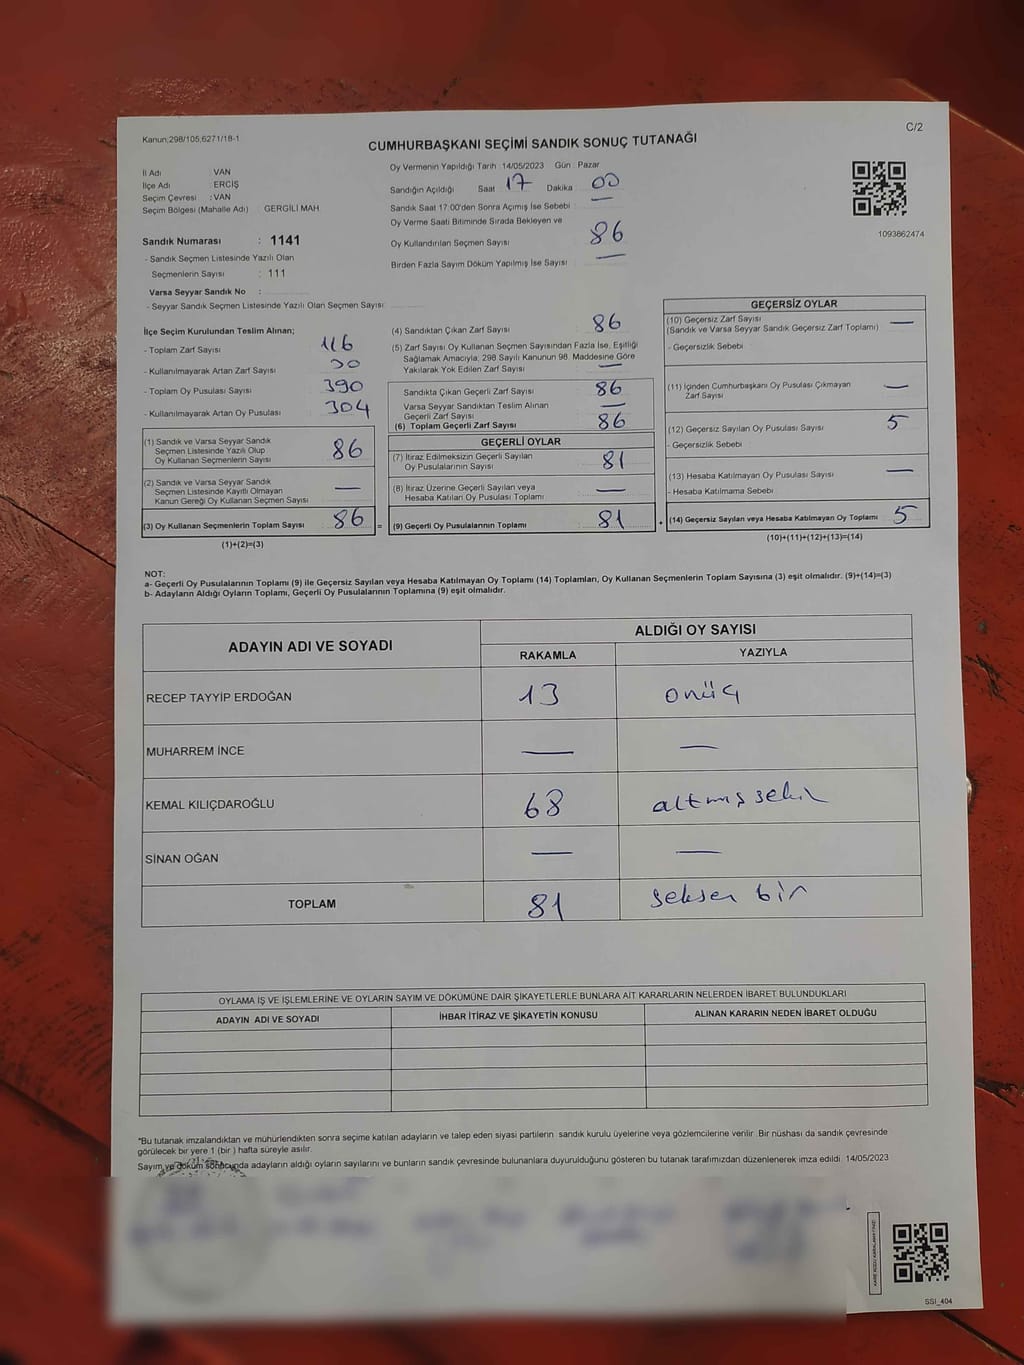 Kanun;298/105;6271/18-1
C/2
CUMHURBAŞKANI SEÇİMİ SANDIK SONUÇ TUTANAĞI
İl Adı VAN
İlçe Adı ERCİŞ
Seçim Çevresi : VAN
Seçim Bölgesi (Mahalle Adı) GERGİLİ MAH
Sandık Numarası : 1141
- Sandık Seçmen Listesinde Yazılı Olan
Seçmenlerin Sayısı : 111
Varsa Seyyar Sandık No :
- Seyyar Sandık Seçmen Listesinde Yazılı Olan Seçmen Sayısı
Oy Vermenin Yapıldığı Tarih 14/05/2023 Gün Pazar
Sandığın Açıldığı Saat 17 Dakika 00
Sandık Saat 17:00'den Sonra Açımış İse Sebebi : —
Oy Verme Saati Bitiminde Sırada Bekleyen ve
Oy Kullandırılan Seçmen Sayısı 86
Birden Fazla Sayım Döküm Yapılmış İse Sayısı —
1093862474
İlçe Seçim Kurulundan Teslim Alınan;
- Toplam Zarf Sayısı 116
- Kullanılmayarak Artan Zarf Sayısı 30
- Toplam Oy Pusulası Sayısı 390
- Kullanılmayarak Artan Oy Pusulası 304
(1) Sandık ve Varsa Seyyar Sandık
Seçmen Listesinde Yazılı Olup
Oy Kullanan Seçmenlerin Sayısı 86
(2) Sandık ve Varsa Seyyar Sandık
Seçmen Listesinde Kayıtlı Olmayan
Kanun Gereği Oy Kullanan Seçmen Sayısı —
(3) Oy Kullanan Seçmenlerin Toplam Sayısı 86 =
(1)+(2)=(3)
(4) Sandıktan Çıkan Zarf Sayısı 86
(5) Zarf Sayısı Oy Kullanan Seçmen Sayısından Fazla İse, Eşitliği
Sağlamak Amacıyla, 298 Sayılı Kanunun 98. Maddesine Göre
Yakılarak Yok Edilen Zarf Sayısı —
Sandıkta Çıkan Geçerli Zarf Sayısı 86
Varsa Seyyar Sandıktan Teslim Alınan
Geçerli Zarf Sayısı —
(6) Toplam Geçerli Zarf Sayısı 86
GEÇERLİ OYLAR
(7) İtiraz Edilmeksizin Geçerli Sayılan
Oy Pusulalarının Sayısı 81
(8) İtiraz Üzerine Geçerli Sayılan veya
Hesaba Katılan Oy Pusulası Toplamı —
(9) Geçerli Oy Pusulalarının Toplamı 81 +
GEÇERSİZ OYLAR
(10) Geçersiz Zarf Sayısı
(Sandık ve Varsa Seyyar Sandık Geçersiz Zarf Toplamı) —
- Geçersizlik Sebebi
(11) İçinden Cumhurbaşkanı Oy Pusulası Çıkmayan
Zarf Sayısı —
(12) Geçersiz Sayılan Oy Pusulası Sayısı 5
- Geçersizlik Sebebi
(13) Hesaba Katılmayan Oy Pusulası Sayısı —
- Hesaba Katılmama Sebebi
(14) Geçersiz Sayılan veya Hesaba Katılmayan Oy Toplamı 5
(10)+(11)+(12)+(13)=(14)
NOT:
a- Geçerli Oy Pusulalarının Toplamı (9) ile Geçersiz Sayılan veya Hesaba Katılmayan Oy Toplamı (14) Toplamları, Oy Kullanan Seçmenlerin Toplam Sayısına (3) eşit olmalıdır. (9)+(14)=(3)
b- Adayların Aldığı Oyların Toplamı, Geçerli Oy Pusulalarının Toplamına (9) eşit olmalıdır.
ADAYIN ADI VE SOYADI
ALDIĞI OY SAYISI
RAKAMLA YAZIYLA
RECEP TAYYİP ERDOĞAN 13 onüç
MUHARREM İNCE — —
KEMAL KILIÇDAROĞLU 68 altmış sekiz
SİNAN OĞAN — —
TOPLAM 81 seksen bir
OYLAMA İŞ VE İŞLEMLERİNE VE OYLARIN SAYIM VE DÖKÜMÜNE DAİR ŞİKAYETLERLE BUNLARA AİT KARARLARIN NELERDEN İBARET BULUNDUKLARI
ADAYIN ADI VE SOYADI İHBAR İTİRAZ VE ŞİKAYETİN KONUSU ALINAN KARARIN NEDEN İBARET OLDUĞU
*Bu tutanak imzalandıktan ve mühürlendikten sonra seçime katılan adayların ve talep eden siyasi partilerin sandık kurulu üyelerine veya gözlemcilerine verilir. Bir nüshası da sandık çevresinde
görülecek bir yere 1 (bir ) hafta süreyle asılır.
Sayım ve döküm sonucunda adayların aldığı oyların sayılarını ve bunların sandık çevresinde bulunanlara duyurulduğunu gösteren bu tutanak tarafımızdan düzenlenerek imza edildi. 14/05/2023
SSI_404